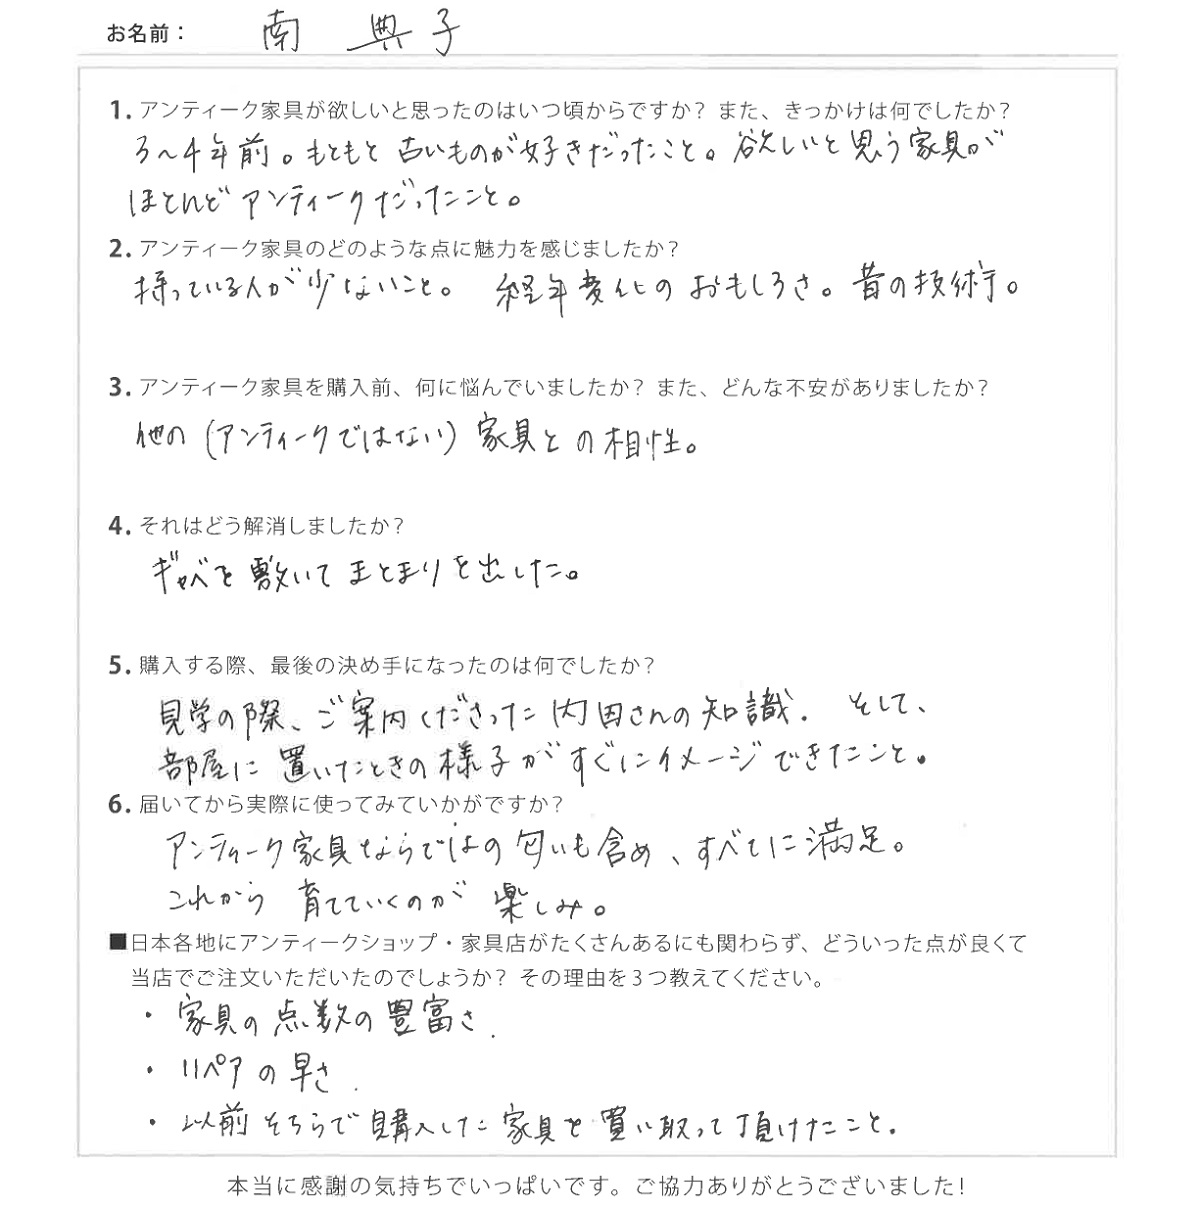 お名前： 南 典子
1. アンティーク家具が欲しいと思ったのはいつ頃からですか？また、きっかけは何でしたか？
3〜4年前。もともと古いものが好きだったこと。欲しいと思う家具が
ほとんどアンティークだったこと。
2. アンティーク家具のどのような点に魅力を感じましたか？
持っている人が少ないこと。 経年変化のおもしろさ。昔の技術。
3. アンティーク家具を購入前、何に悩んでいましたか？また、どんな不安がありましたか？
他の（アンティークではない）家具との相性。
4. それはどう解消しましたか？
ギャベを敷いてまとまりを出した。
5. 購入する際、最後の決め手になったのは何でしたか？
見学の際、ご案内くださった内田さんの知識. そして、
部屋に置いたときの様子がすぐにイメージできたこと。
6. 届いてから実際に使ってみていかがですか？
アンティーク家具ならではの匂いも含め、すべてに満足。
これから育てていくのが楽しみ。
■日本各地にアンティークショップ・家具店がたくさんあるにも関わらず、どういった点が良くて
当店でご注文いただいたのでしょうか？その理由を3つ教えてください。
・家具の点数の豊富さ.
・リペアの早さ.
・以前そちらで購入した家具を買い取って頂けたこと.
本当に感謝の気持ちでいっぱいです。ご協力ありがとうございました！